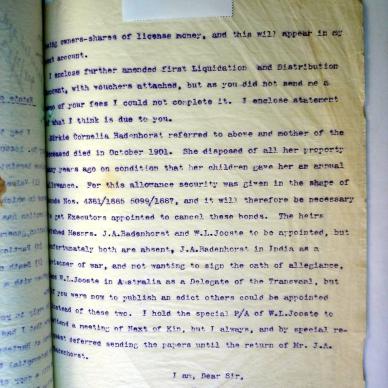 owners-shares of license money, and this will appear in my
account.
I enclose further amended first Liquidation and Distribution
account, with vouchers attached, but as you did not send me a
of your fees I could not complete it. I enclose statement
of what I think is due to you.
Cornelia Badenhorst referred to above and mother of the
deceased died in October 1901. She disposed of all her property
many years ago on condition that her children gave her an annual
allowance. For this allowance security was given in the shape of
Bonds Nos. 4361/1885 5099/1887, and it will therefore be necessary
to get Executors appointed to cancel these bonds. The heirs
wished Messrs. J.A.Badenhorst and W.L.Jooste to be appointed, but
unfortunately both are absent, J.A.Badenhorst in India as a
prisoner of war, and not wanting to sign the oath of allegiance,
W.L.Jooste in Australia as a Delegate of the Transvaal, but
if you were now to publish an edict others could be appointed
instead of these two. I hold the special P/A of W.L.Jooste to
attend a meeting of Next of Kin, but I always, and by special re-
quest deferred sending the papers until the return of Mr. J.A.
Badenhorst.
I am, Dear Sir,